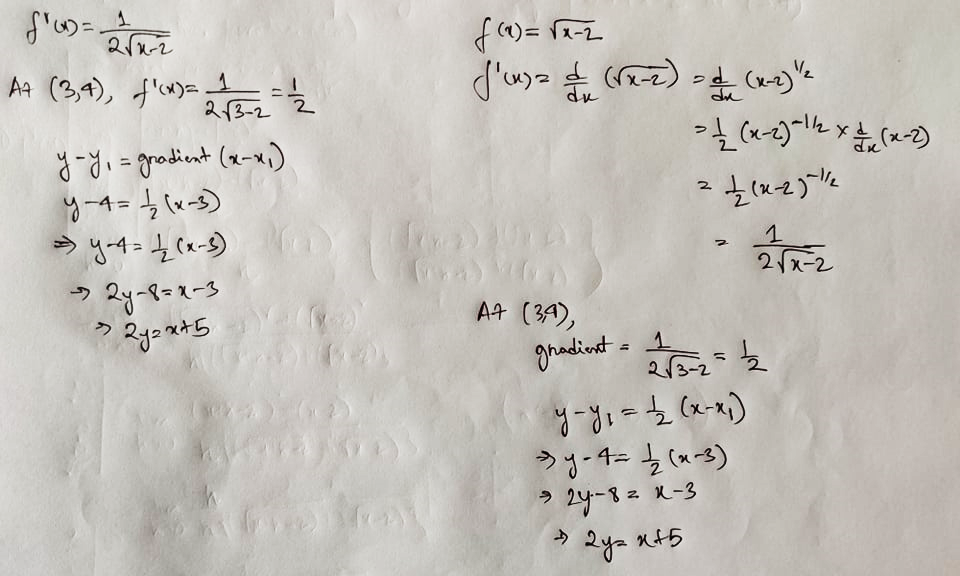 f'(x) = 1/(2√(x-2))
At (3,4), f'(x) = 1/(2√(3-2)) = 1/2
y - y₁ = gradient (x - x₁)
y - 4 = 1/2 (x - 3)
⇒ y - 4 = 1/2 (x - 3)
⇒ 2y - 8 = x - 3
⇒ 2y = x + 5
f(x) = √(x-2)
f'(x) = d/dx (√(x-2)) = d/dx (x-2)^1/2
= 1/2 (x-2)^-1/2 × d/dx (x-2)
= 1/2 (x-2)^-1/2
= 1/(2√(x-2))
At (3,4),
gradient = 1/(2√(3-2)) = 1/2
y - y₁ = 1/2 (x - x₁)
⇒ y - 4 = 1/2 (x - 3)
⇒ 2y - 8 = x - 3
⇒ 2y = x + 5